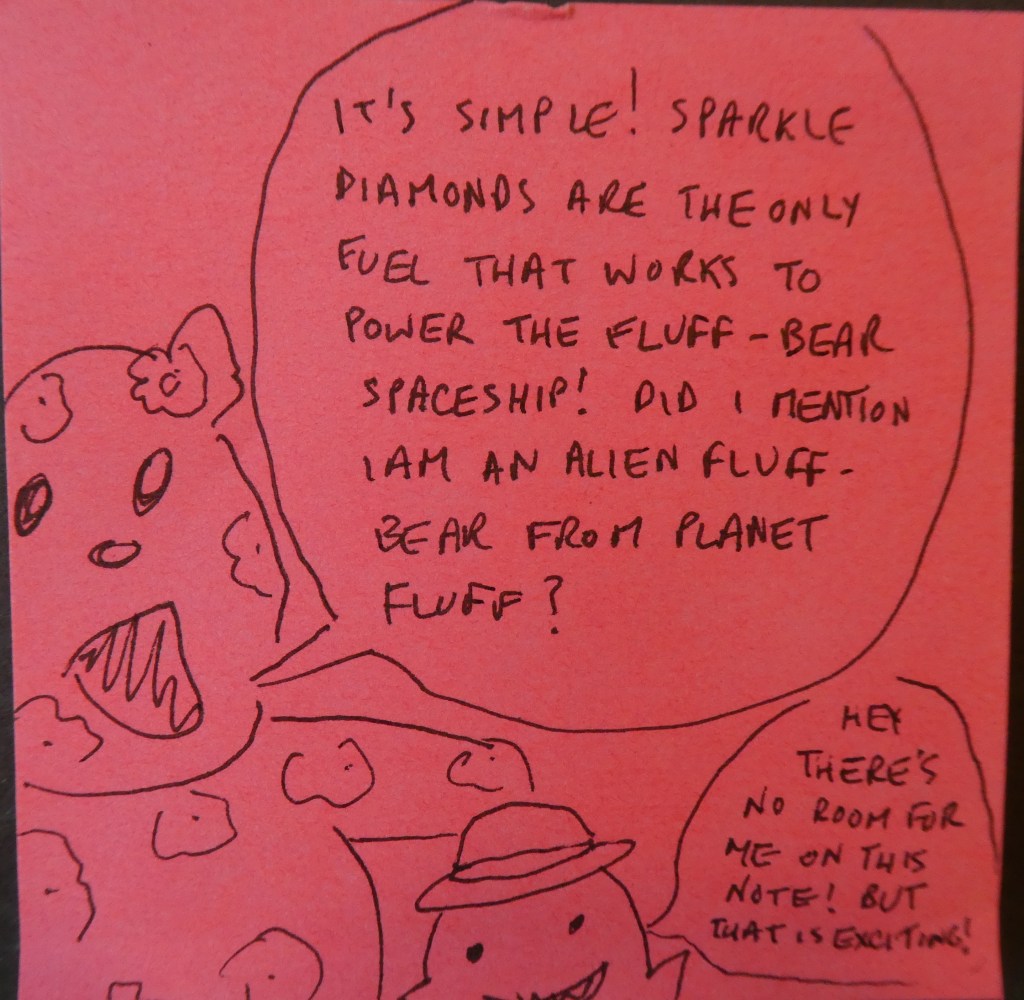 IT'S SIMPLE! SPARKLE
DIAMONDS ARE THE ONLY
FUEL THAT WORKS TO
POWER THE FLUFF-BEAR
SPACESHIP! DID I MENTION
I AM AN ALIEN FLUFF-
BEAR FROM PLANET
FLUFF?
HEY
THERE'S
NO ROOM FOR
ME ON THIS
NOTE! BUT
THAT IS EXCITING!